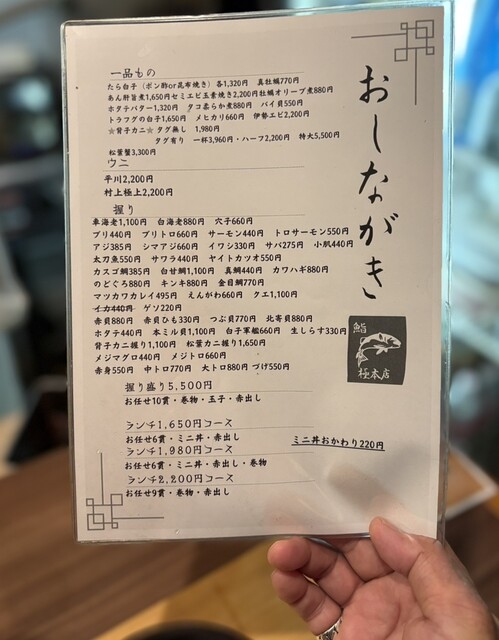 おしながき
一品もの
たら白子(ポン酢or昆布焼き)各1,320円 真牡蠣770円
あん肝旨煮1,650円セミエビ玉素焼き2,200円牡蠣オリーブ煮880円
ホタテバター1,320円 タコ柔らか煮880円 バイ貝550円
トラフグの白子1,650円 メヒカリ660円 伊勢エビ2,200円
☆背子カニ☆ タグ無し 1,980円
タグ有り 一杯3,960円・ハーフ2,200円 特大5,500
松葉蟹3,300円
ウニ
平川2,200円
村上極上2,200円
握り
車海老1,100円 白海老880円 穴子660円
ブリ440円 ブリトロ660円 サーモン440円 トロサーモン550円
アジ385円 シマアジ660円 イワシ330円 サバ275円 小肌440円
太刀魚550円 サワラ440円 ヤイトカツオ550円
カスゴ鯛385円 白甘鯛1,100円 真鯛440円 カワハギ880円
のどぐろ880円 キンキ880円 金目鯛770円
マツカワカレイ495円 えんがわ660円 クエ1,100円
イカ440円 ゲソ220円
赤貝880円 赤貝ひも330円 つぶ貝770円 北寄貝880円
ホタテ440円 本ミル貝1,100円 白子軍艦660円 生しらす330円
背子カニ握り1,100円 松葉カニ握り1,650円
メジマグロ440円 メジトロ660円
赤身550円 中トロ770円 大トロ880円 づけ550円
握り盛り5,500円
お任せ10貫・巻物・玉子・赤出し
ランチ1,650円コース
お任せ6貫・ミニ丼・赤出し
ミニ丼おかわり220円
ランチ1,980円コース
お任せ6貫・ミニ丼・赤出し・巻物
ランチ2,200円コース
お任せ9貫・巻物・赤出し
鮨
極本店